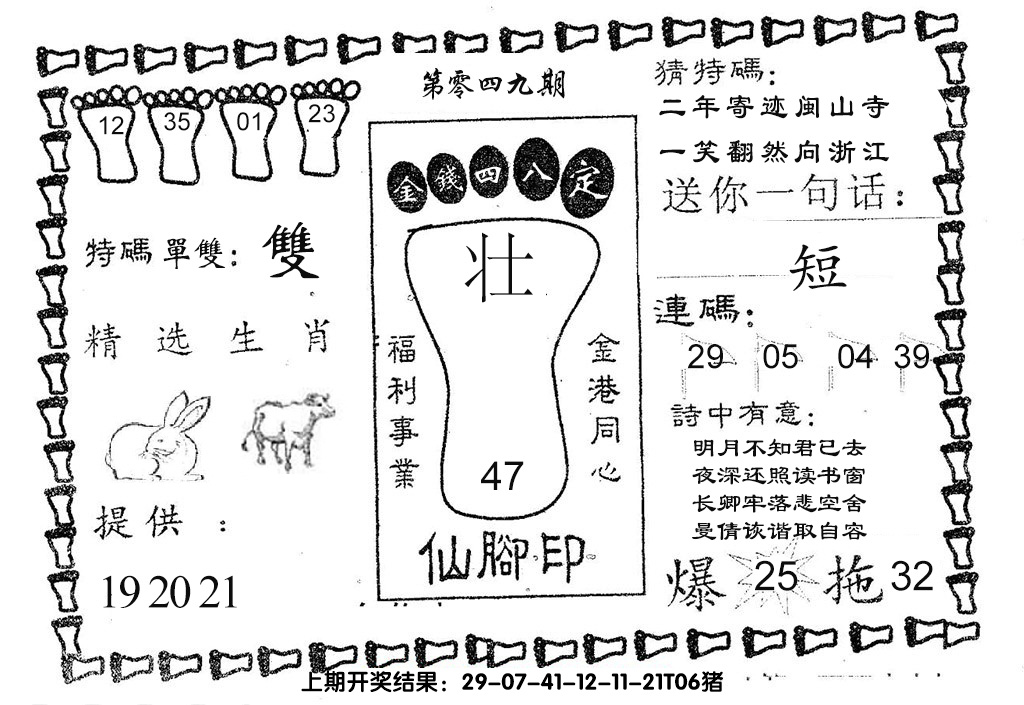 第零四九期
12 35 01 23
特碼單雙：雙
精选生肖
提供：
19 20 21
金錢四八定
壮
福利事業
金港同心
47
仙腳印
猜特碼：
二年寄迹闽山寺
一笑翻然向浙江
送你一句话：
短
連碼：
29 05 04 39
詩中有意：
明月不知君已去
夜深还照读书窗
长卿牢落悲空舍
曼倩诙谐取自容
爆 25 拖 32
上期开奖结果：29-07-41-12-11-21T06猪